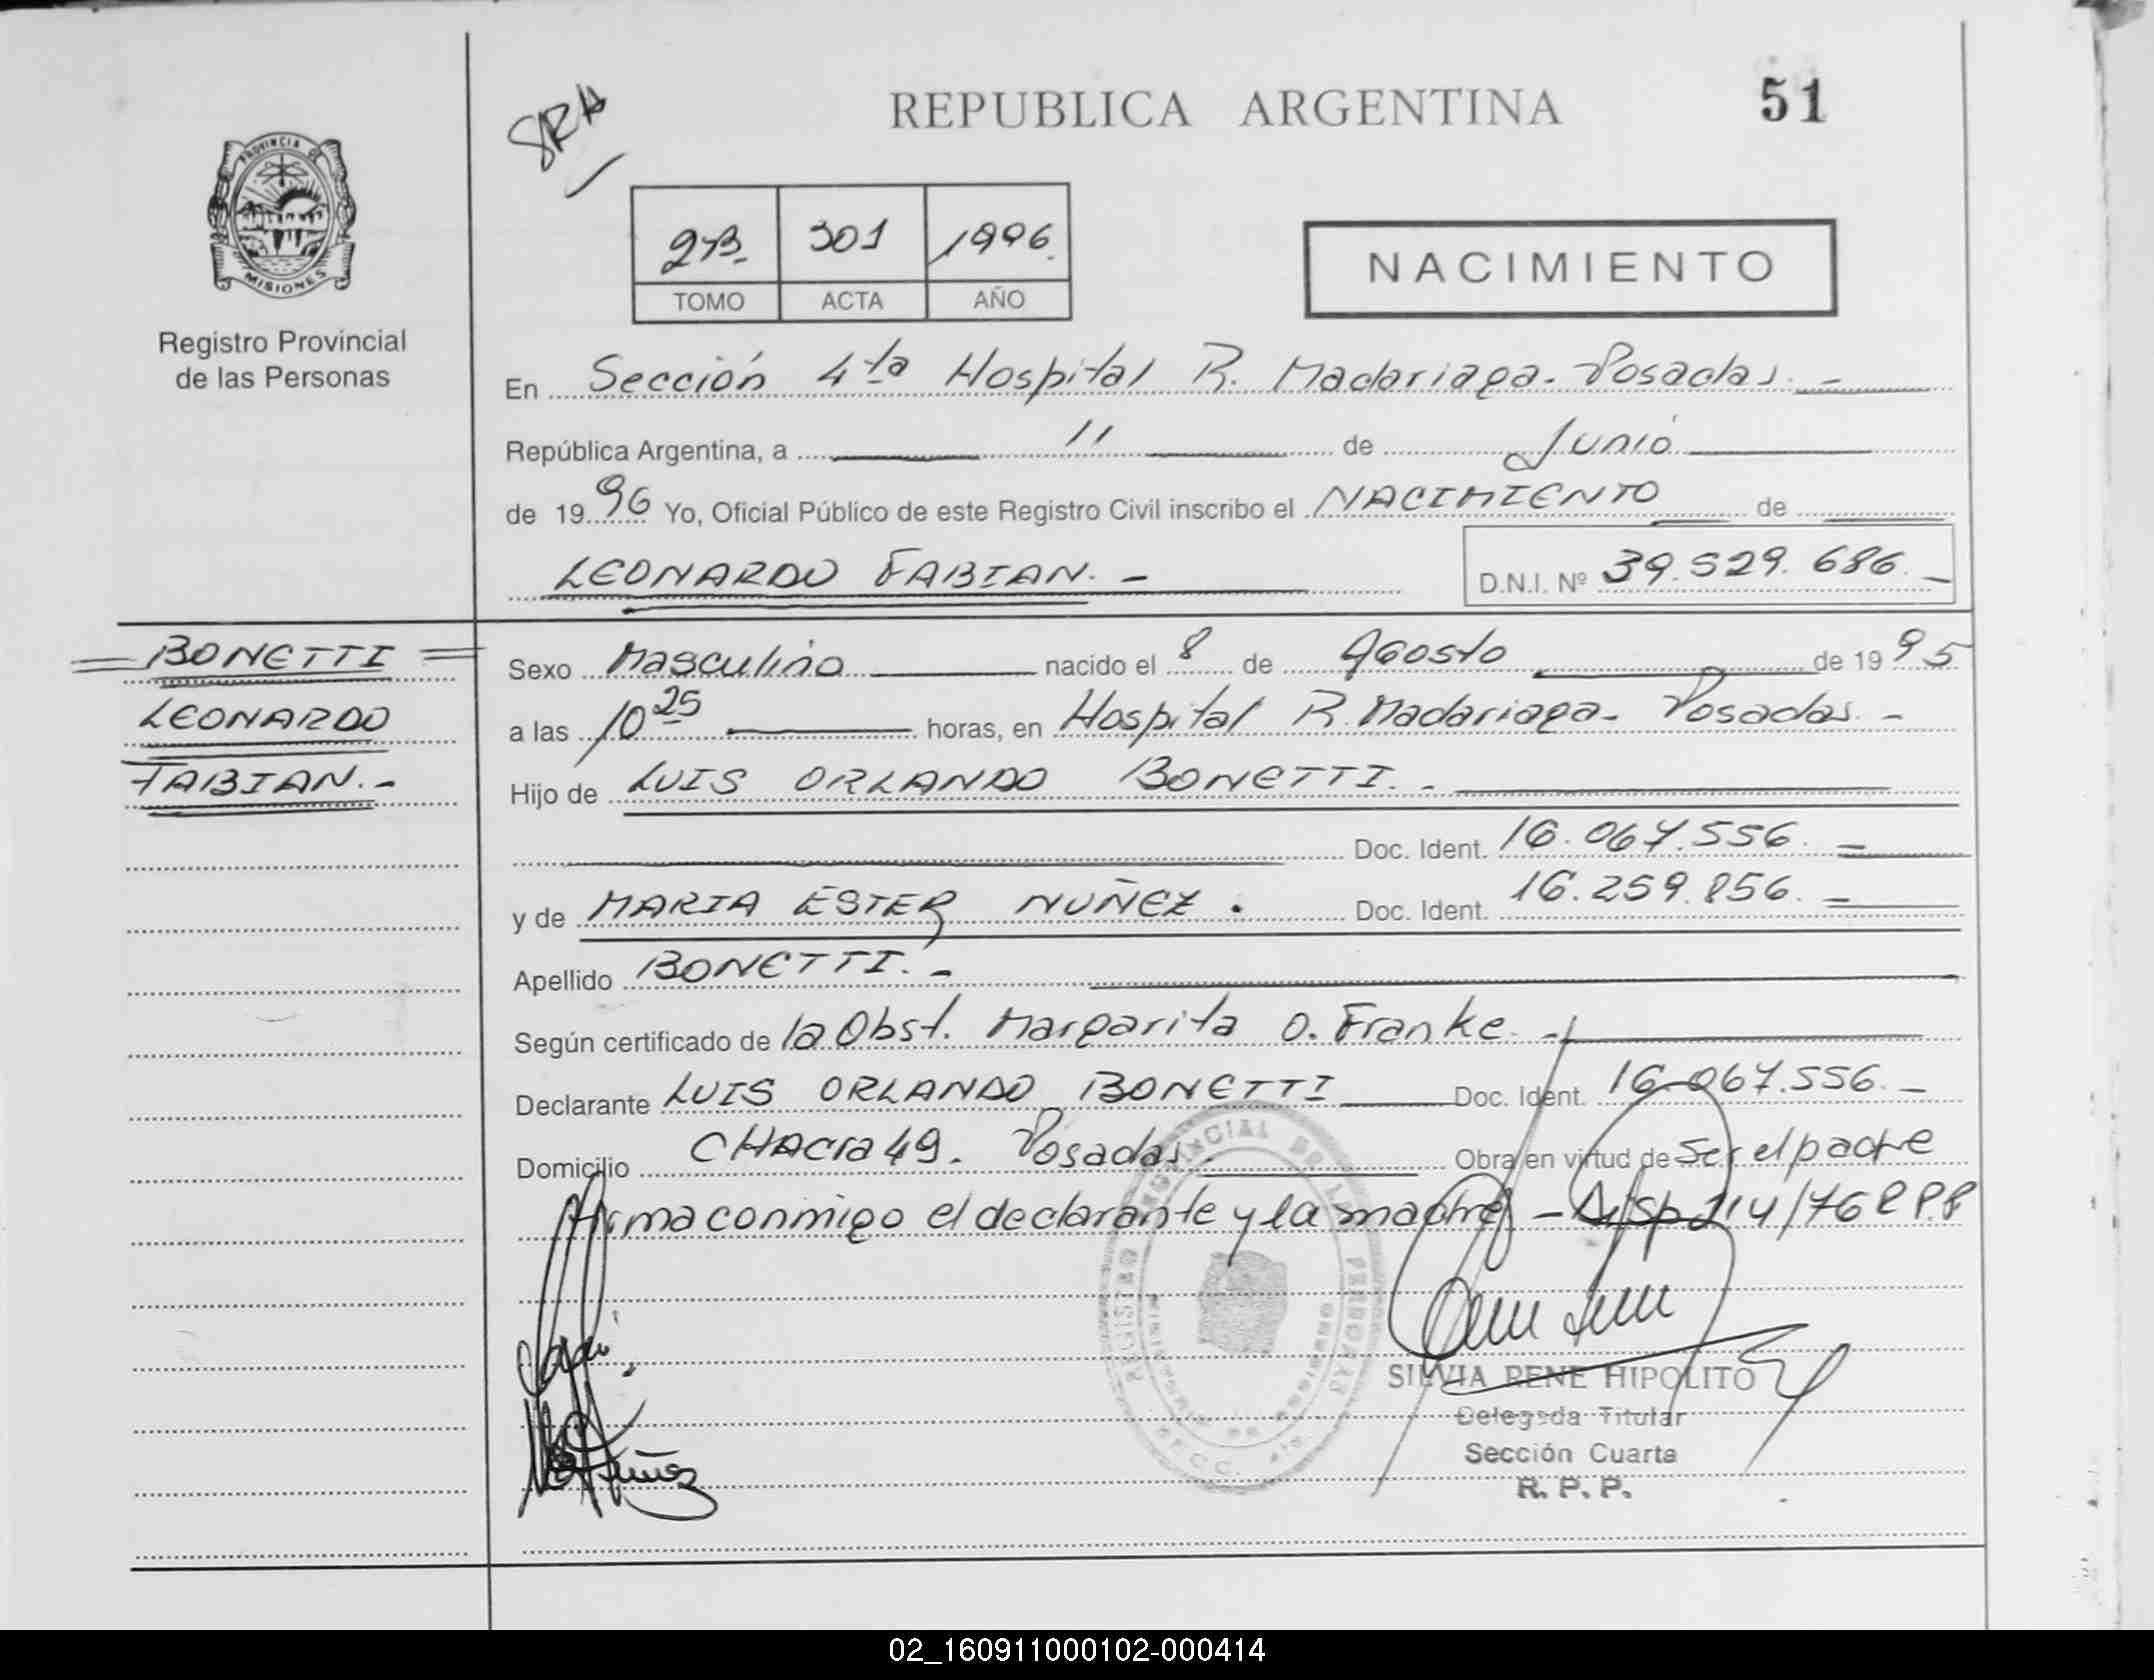 SRA
REPUBLICA ARGENTINA
51
PROVINCIA DE
MISIONES
Registro Provincial
de las Personas
2B. 301 1996.
TOMO ACTA AÑO
NACIMIENTO
En Sección 4ta Hospital R. Madariaga. Posadas. -
República Argentina, a 11 de Junio
de 1996 Yo, Oficial Público de este Registro Civil inscribo el NACIMIENTO de
LEONARDO FABIAN. -
D.N.I. Nº 39.529.686. -
BONETTI
LEONARDO
FABIAN. -
Sexo Masculino nacido el 8 de Agosto de 1995
a las 10 25 horas, en Hospital R. Madariaga - Posadas. -
Hijo de LUIS ORLANDO BONETTI. -
Doc. Ident. 16.067.556. -
y de MARIA ESTER NUÑEZ . Doc. Ident. 16.259.856. -
Apellido BONETTI. -
Según certificado de la Obst. Margarita O. Franke. -
Declarante LUIS ORLANDO BONETTI Doc. Ident. 16.067.556. -
Domicilio CHACra 49. Posadas. Obra en virtud de Ser el padre
firma conmigo el declarante y la madre - Disp 214/76 R.P.P
REGISTRO PROVINCIAL DE LAS PERSONAS
SILVIA RENE HIPOLITO
Delegada Titular
Sección Cuarta
R. P. P.
Nuñez
02_160911000102-000414